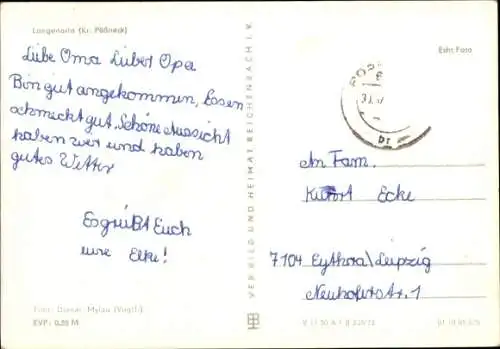 Langenorla (Kr. Pößneck)
Liebe Oma Lieber Opa
Bin gut angekommen, Essen
schmeckt gut, Schöne Aussicht
haben wir und haben
gutes Wetter
Es grüßt Euch
eure Elke!
Foto: Darr Mylau (Vogtl.)
EVP: 0,20 M
VERLAG BILD UND HEIMAT REICHENBACH i. V.
Echt Foto
An Fam.
Kurt Ecke
7104 Eythra/Leipzig
Neuhofstr. 1
V 11 50 A 1 B